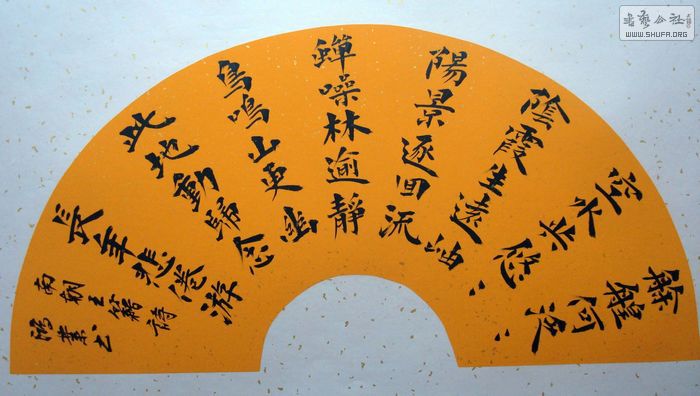 艅艎何泛：
空水共悠：
陰霞生遠岫
陽景逐回流
蟬噪林逾靜
鳥鳴山更幽
此地動歸念
長年悲倦游
南朝王籍詩
鴻業书
书藝公社
WWW.SHUFA.ORG